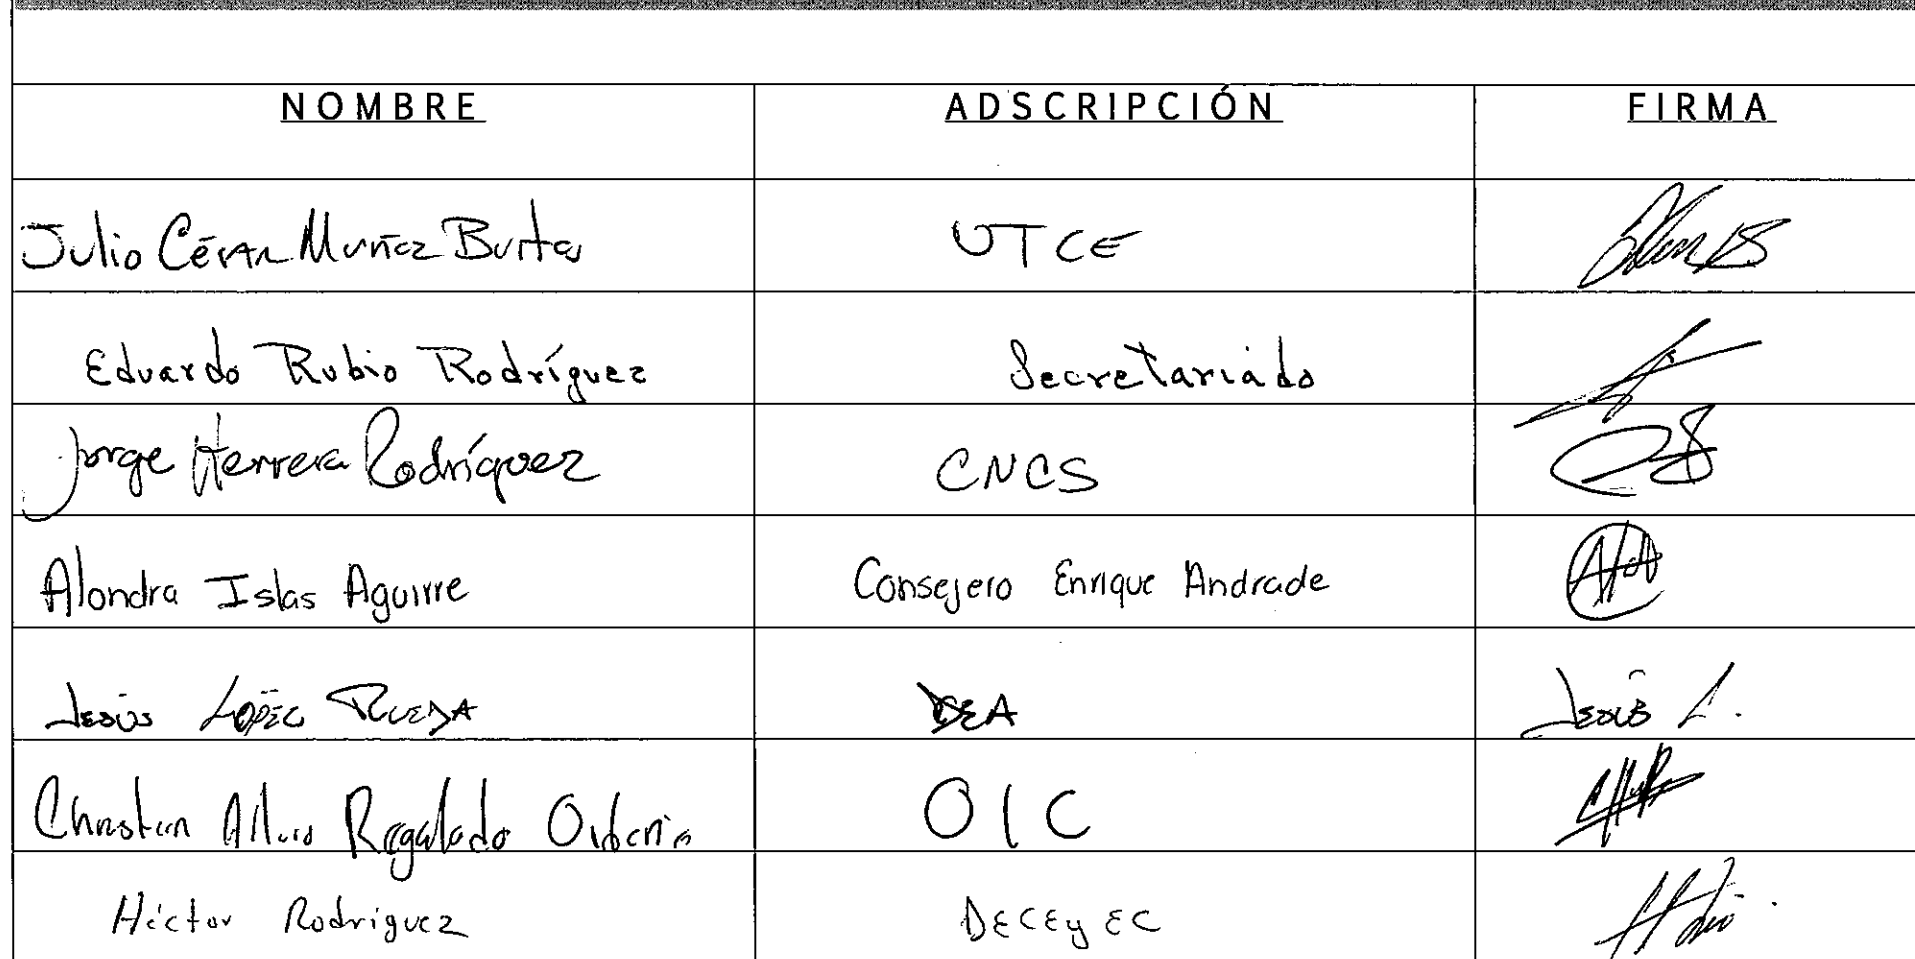 NOMBRE ADSCRIPCIÓN FIRMA
Julio César Muñoz UTCE
Eduardo Rubio Rodríguez Secretariado
Jorge Herrera Rodríguez CNCS
Alondra Islas Aguirre Consejero Enrique Andrade
Jesús López Rueda DEA Jesús L.
Regalado OIC
Héctor Rodríguez DECEyEC